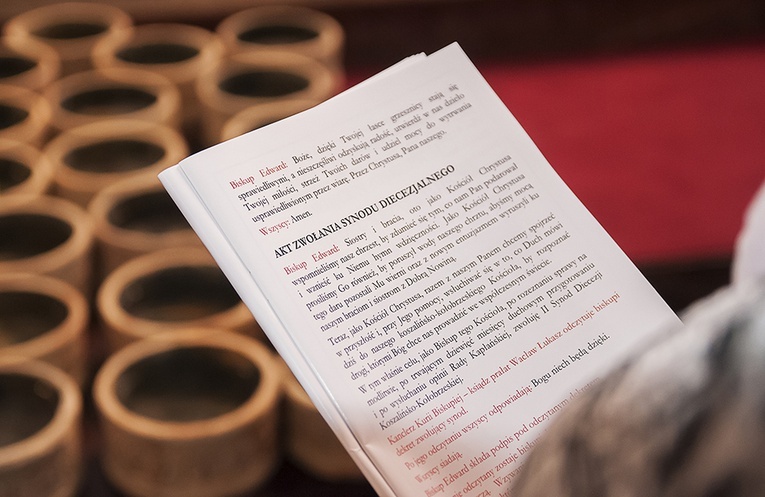 Biskup Edward: Boże, dzięki Twojej łasce grzesznicy stają się
sprawiedliwymi, a nieszczęśliwi odzyskują radość, utwierdź w nas dzieło
Twojej miłości, strzeż Twoich darów i udziel mocy do wytrwania
usprawiedliwionym przez wiarę. Przez Chrystusa, Pana naszego.
Wszyscy: Amen.
AKT ZWOŁANIA SYNODU DIECEZJALNEGO
Biskup Edward: Siostry i bracia, oto jako Kościół Chrystusa
wspomnieliśmy nasz chrzest, by zdumieć się tym, co nam Pan podarował
i wznieść ku Niemu hymn wdzięczności. Jako Kościół Chrystusa
prosiliśmy Go również, by poruszył wody naszego chrztu, abyśmy mocą
tego daru pozostali Mu wierni oraz z nowym entuzjazmem wyruszyli ku
naszym braciom i siostrom z Dobrą Nowiną.
Teraz, jako Kościół Chrystusa, razem z naszym Panem chcemy spojrzeć
w przyszłość i, przy Jego pomocy, wsłuchać się w to, co Duch mówi
dziś do naszego koszalińsko-kołobrzeskiego Kościoła, by rozpoznać
drogi, którymi Bóg chce nas prowadzić we współczesnym świecie.
W tym właśnie celu, jako Biskup tego Kościoła, po rozeznaniu sprawy na
modlitwie, po trwającym dziewięć miesięcy duchowym przygotowaniu
i po wysłuchaniu opinii Rady Kapłańskiej, zwołuję II Synod Diecezji
Koszalińsko-Kołobrzeskiej.
Kanclerz Kurii Biskupiej – ksiądz prałat Wacław Łukasz odczytuje biskupi
dekret zwołujący synod.
Po jego odczytaniu wszyscy odpowiadają: Bogu niech będą dzięki.
Wszyscy siadają.
Biskup Edward składa podpis pod odczytanym
odczytany zostaje